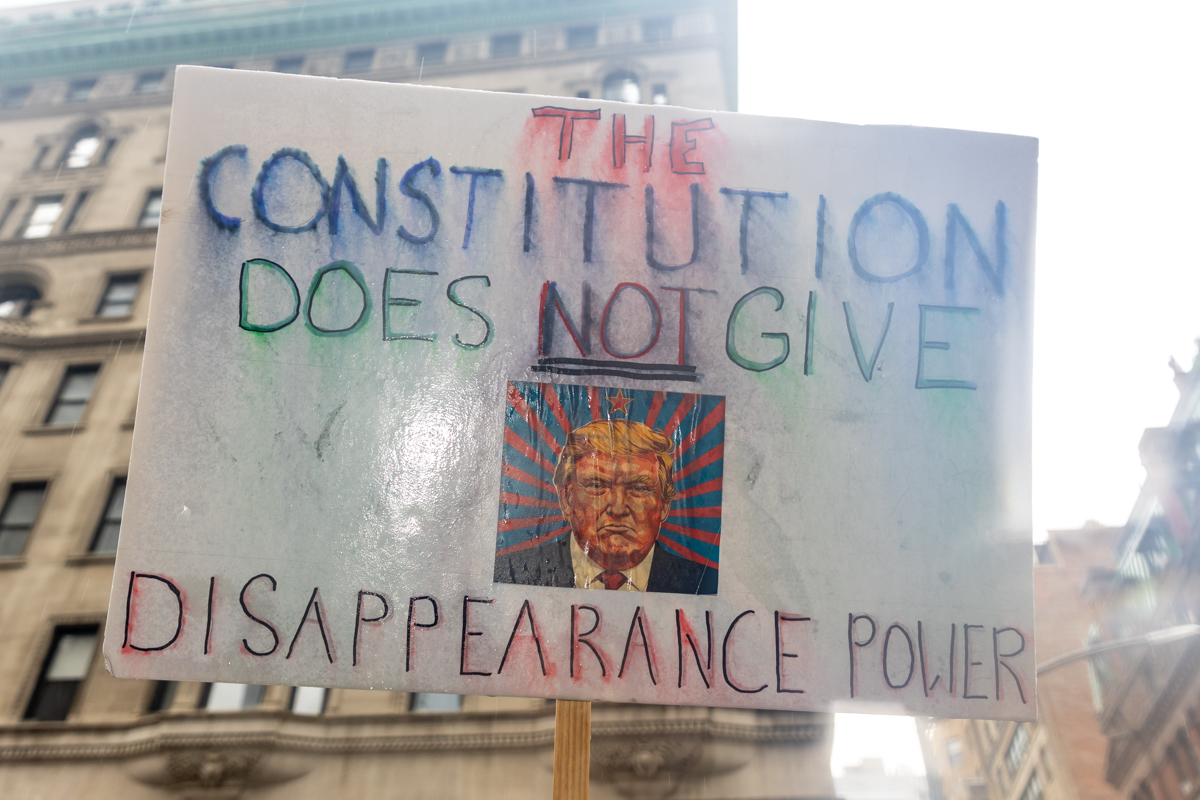 THE
CONSTITUTION
DOES NOT GIVE
DISAPPEARANCE POWER